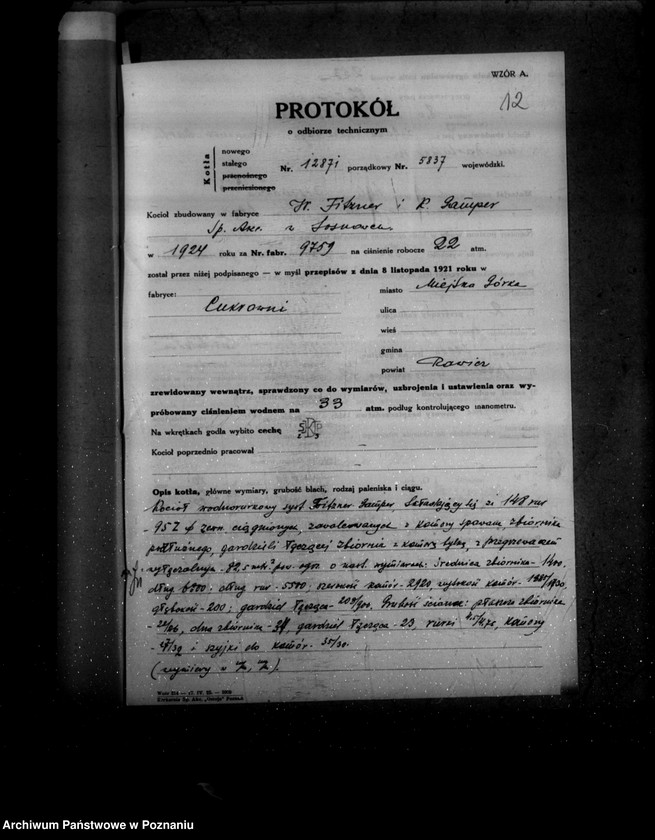 WZÓR A.
12
PROTOKÓŁ
o odbiorze technicznym
Kotła
nowego
stałego Nr. 12871 porządkowy Nr. 5837 wojewódzki.
przenośnego
przeniesionego
Kocioł zbudowany w fabryce W. Fitzner i K. Gamper
Sp. Akc. w Sosnowcu
w 1924 roku za Nr. fabr. 9759 na ciśnienie robocze 22 atm.
został przez niżej podpisanego — w myśl przepisów z dnia 8 listopada 1921 roku w
fabryce: miasto Miejska Górka
Cukrowni ulica
wieś
gmina
powiat Rawicz
zrewidowany wewnątrz, sprawdzony co do wymiarów, uzbrojenia i ustawienia oraz wy-
próbowany ciśnieniem wodnem na 33 atm. podług kontrolującego manometru.
Na wkrętkach godła wybito cechę
Kocioł poprzednio pracował —
Opis kotła, główne wymiary, grubość blach, rodzaj paleniska i ciągu.
Kocioł wodnorurkowy syst. Fitzner Gamper składający się ze 148 rur
95 zewn. ciągnionych, zawalcowanych z komory spawan. zbiornika
podłużnego, gardzieli łączącej zbiornik z komorą tylną, z
o nast. wymiarach: średnica zbiornika - 1400,
dług. 6000; dług. rur - 5500; szerokość komór - 2920, wysokość komór
głębokość - 200; gardziel łącząca Grubość ścianek: płaszcza zbiornika
- 22/26, dna zbiornika gardziel łącząca - 23, rurki komory
i szyjki do komór.
(wymiary w